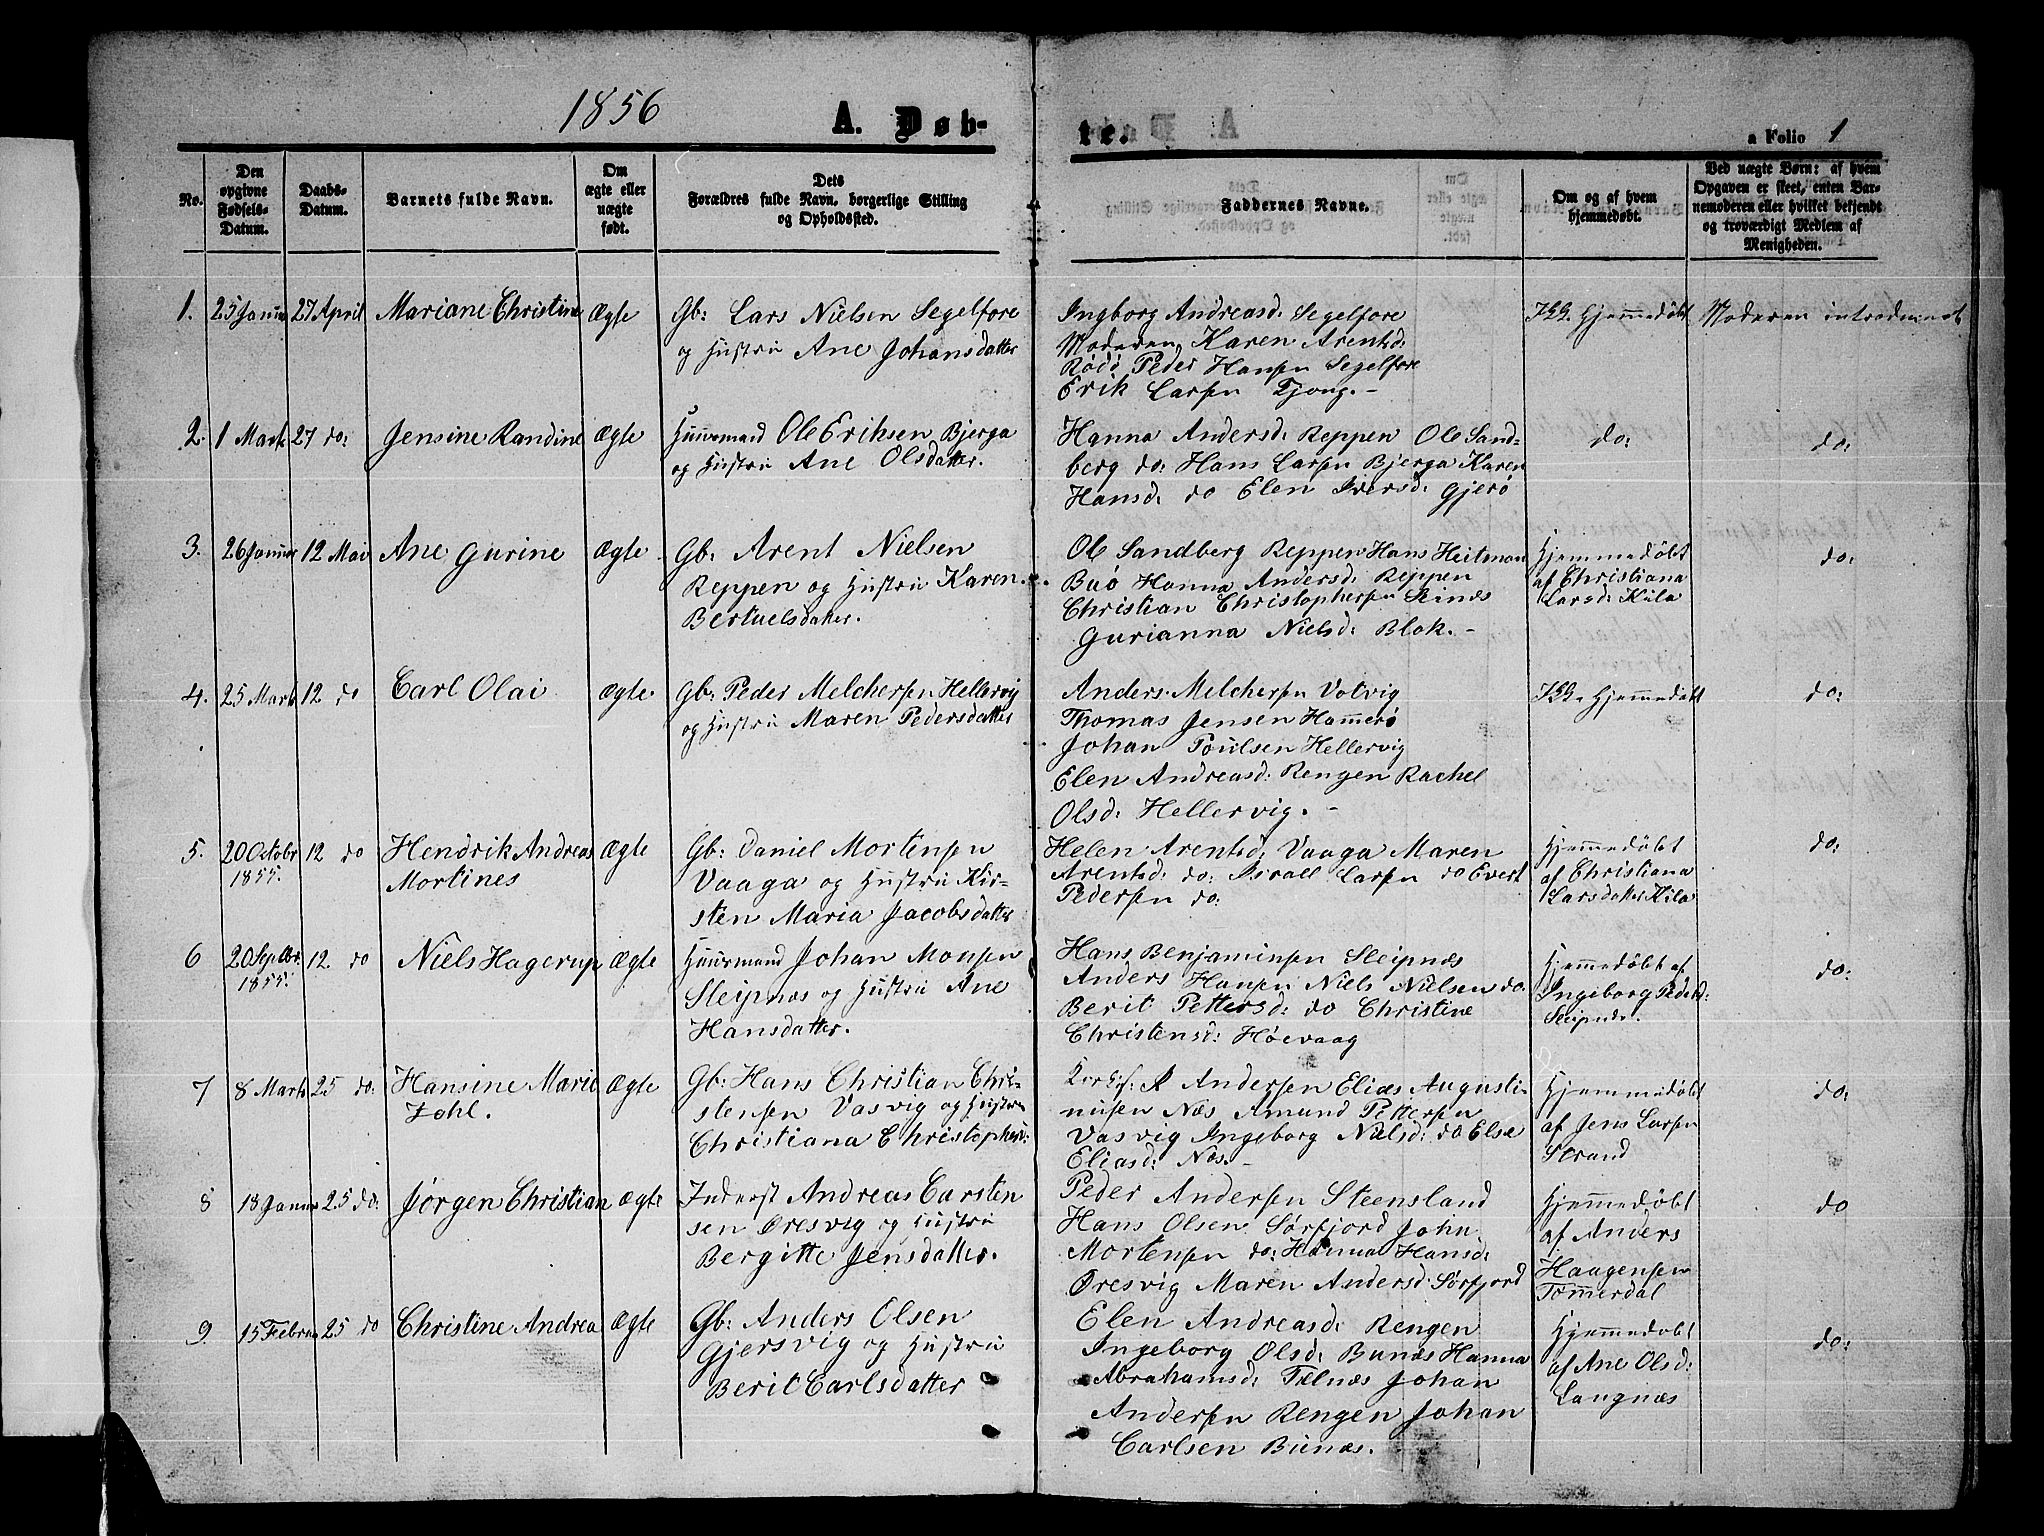 1856
A. Døb-
te.
a Folio 1
No.
Den
opgivne
Fødsels-
Datum.
Daabs-
Datum.
Barnets fulde Navn.
Om
ægte eller
uægte
født.
Dets
Forældres fulde Navn, borgerlige Stilling
og Opholdssted.
Faddernes Navne.
Om og af hvem
hjemmedøbt.
Ved uægte Børn: af hvem
Opgaven er skeet, enten Bar-
nemoderen eller hvilket bekjendt
og troværdigt Medlem af
Menigheden.
1. 25 Januar 27 April Mariane Christine Ægte
Gb: Lars Nielsen Segelfore
og Hustru Ane Johansdatter
Ingborg Andreasd: Segelfore
Moderen, Karen Arentsd:
Rødø Peder Hansen Segelfore
Erik Larsen Tjong. -
Ikke Hjemmedøbt
Moderen introduceret
2. 1 Marts 27 do: Jensine Randine Ægte
Huusmand Ole Eriksen Bjerga
og Hustru Ane Olsdatter.
Hanna Andersd: Reppen Ole Sand-
berg do: Hans Larsen Bjerga Karen
Hansd: do Elen Iversd: Gjerø
do:
do:
3. 26 Januar 12 Mai Ane Gurine Ægte
Gb: Arent Nielsen
Reppen og Hustru Karen
Bertuelsdatter.
Ole Sandberg Reppen Hans Heitman
Buø Hanna Andersd: Reppen
Christian Christophersen
Gurianna Nielsd: Blok. -
Hjemmedøbt
af Christiana
Larsd: Kila
do:
4. 25 Marts 12 do Carl Olai Ægte
Gb: Peder Melchersen Hellervig
og Hustru Maren Pedersdatter
Anders Melchersen Votvig
Thomas Jensen Hammerø
Johan Poulsen Hellervig
Elen Andreasd: Rengen Rachel
Olsd: Hellervig. -
Ikke Hjemmedøbt
do:
5. 20 Octobr 12 do Hendrik Andreas Ægte
1855.
Mortines
Gb: Daniel Mortensen
Vaaga og Hustru Kir-
sten Maria Jacobsdatter
Helen Arentsd: Vaaga Maren
Arentsd: do: Israel Larsen do Evert
Pedersen do:
Hjemmedøbt
af Christiana
Larsdatter Kila
do:
6 20 Septbr. 12. do Niels Hagerup Ægte
1855.
Huusmand Johan Monsen
Sleipnæs og Hustru Ane
Hansdatter.
Hans Benjaminsen Sleipnæs
Anders Hansen Niels Nielsen do:
Berit Pettersd: do Christine
Christensd: Høevaag
Hjemmedøbt af
Ingeborg Pedersd:
Sleipnæs.
do:
7 8 Marts 25 do: Hansine Marie Ægte
Zohl.
Gb: Hans Christian Chri-
stensen Vasvig og Hustru
Christiana Christophersd:
A Andersen Elias Augusti-
nusen Næs Amund Pettersen
Vasvig Ingeborg Nielsd: do Else
Eliasd: Næs. -
Hjemmedøbt
af Jens Larsen
Strand
do:
8 18 Januar 25 do: Jørgen Christian Ægte
Inderst Andreas Carsten
sen Øresvig og Hustru
Bergitte Jensdatter.
Peder Andersen Steensland
Hans Olsen Sørfjord John
Mortensen do: Hanna Hansd:
Øresvig Maren Andersd: Sørfjord
Hjemmedøbt
af Anders
Haagensen
Tømmerdal
do
9. 15 Februar 25 do Christine Andrea Ægte
Gb: Anders Olsen
Gjersvig og Hustru
Berit Carlsdatter
Elen Andreasd: Rengen
Ingeborg Olsd: Bunæs Hanna
Abrahamsd: Telnæs Johan
Andersen Rengen Johan
Carlsen Bunæs.
Hjemmedøbt
af Ane Olsd:
Langnæs
do: